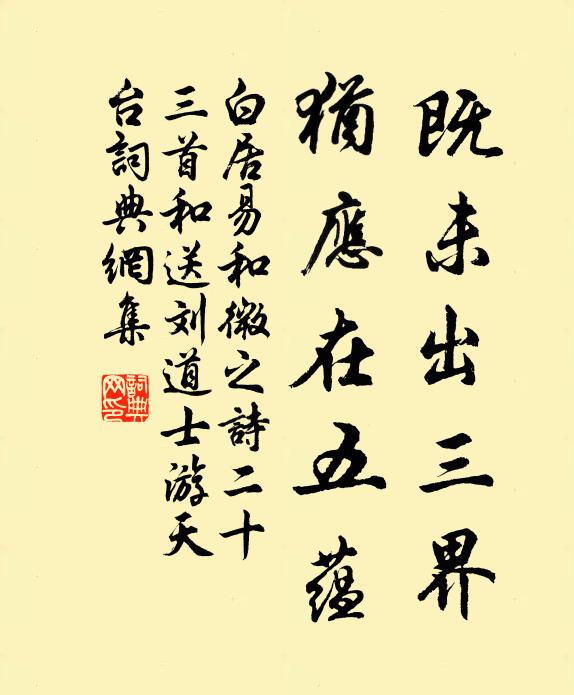 既未出三界
猶應在五蕴
白居易和微之詩二十
三首和送刘道士游天
台詞典網集
詞典
网印